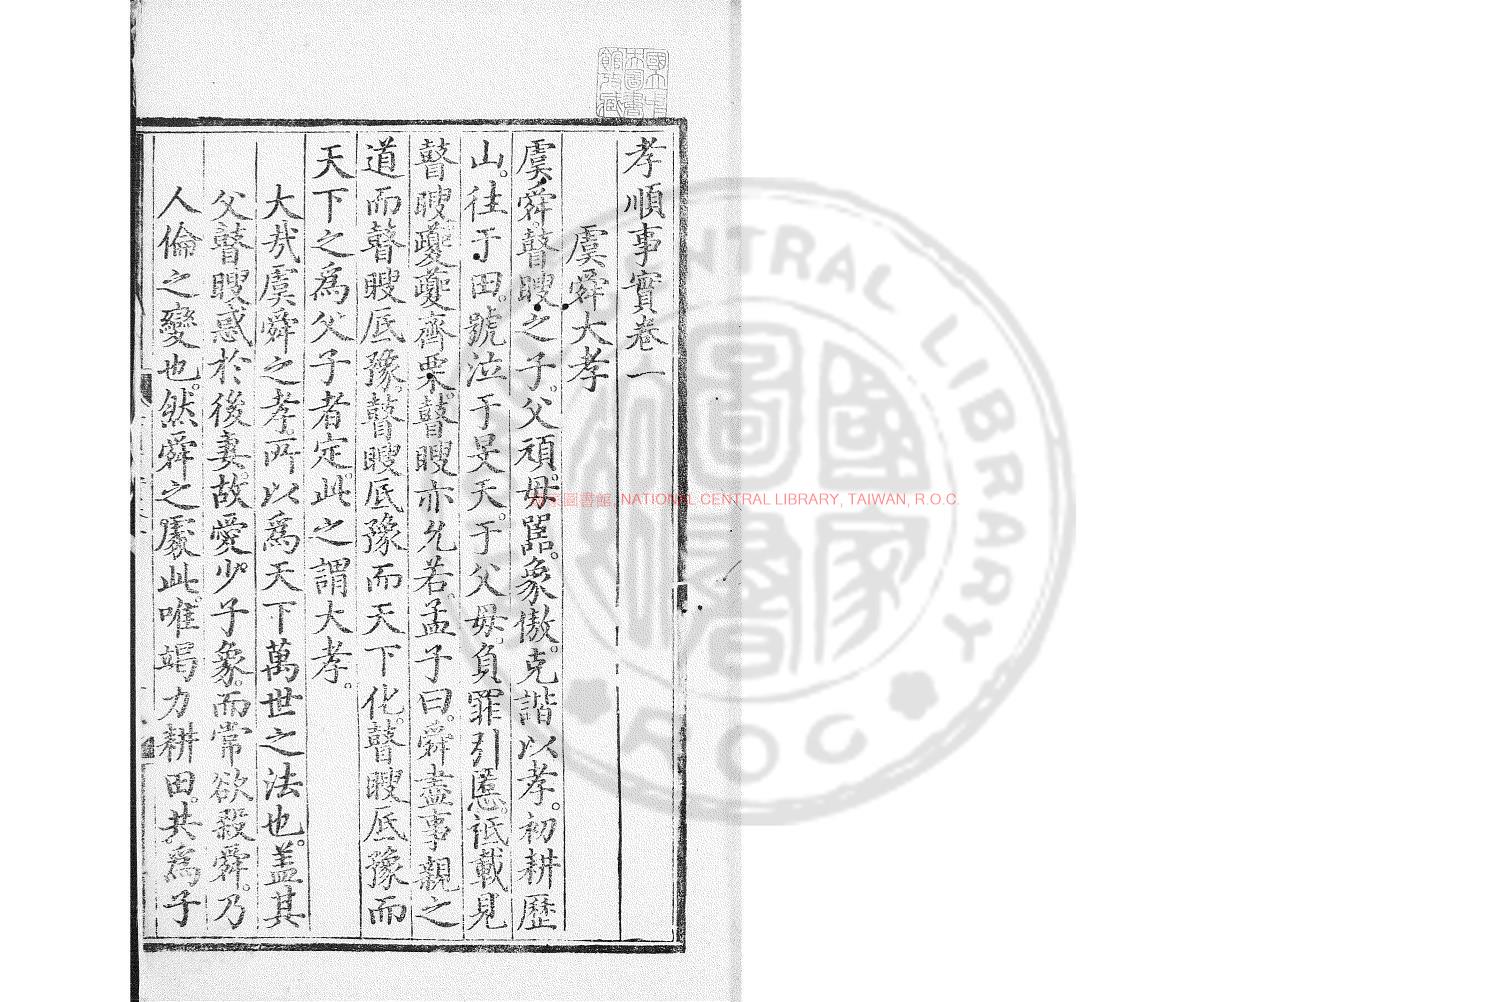 孝順事實卷一
虞舜大孝
虞舜。瞽瞍之子。父頑。毋嚚。象傲。克諧以孝。初耕歷
山。往于田。號泣于旻天。于父毋。負罪引慝。祗載見
瞽瞍夔夔齊栗。瞽瞍亦允若。孟子曰。舜盡事親之
道而瞽瞍厎豫。瞽瞍厎豫而天下化。瞽瞍厎豫而
天下之爲父子者定。此之謂大孝。
大哉虞舜之孝。所以爲天下萬世之法也。盖其
父瞽瞍惑於後妻。故愛少子象。而常欲殺舜。乃
人倫之變也。然舜之處此。唯竭力耕田。共爲子
國家圖書館, NATIONAL CENTRAL LIBRARY, TAIWAN, R.O.C.
CENTRAL LIBRARY
R O C
國家圖書館
國立中央圖書館收藏